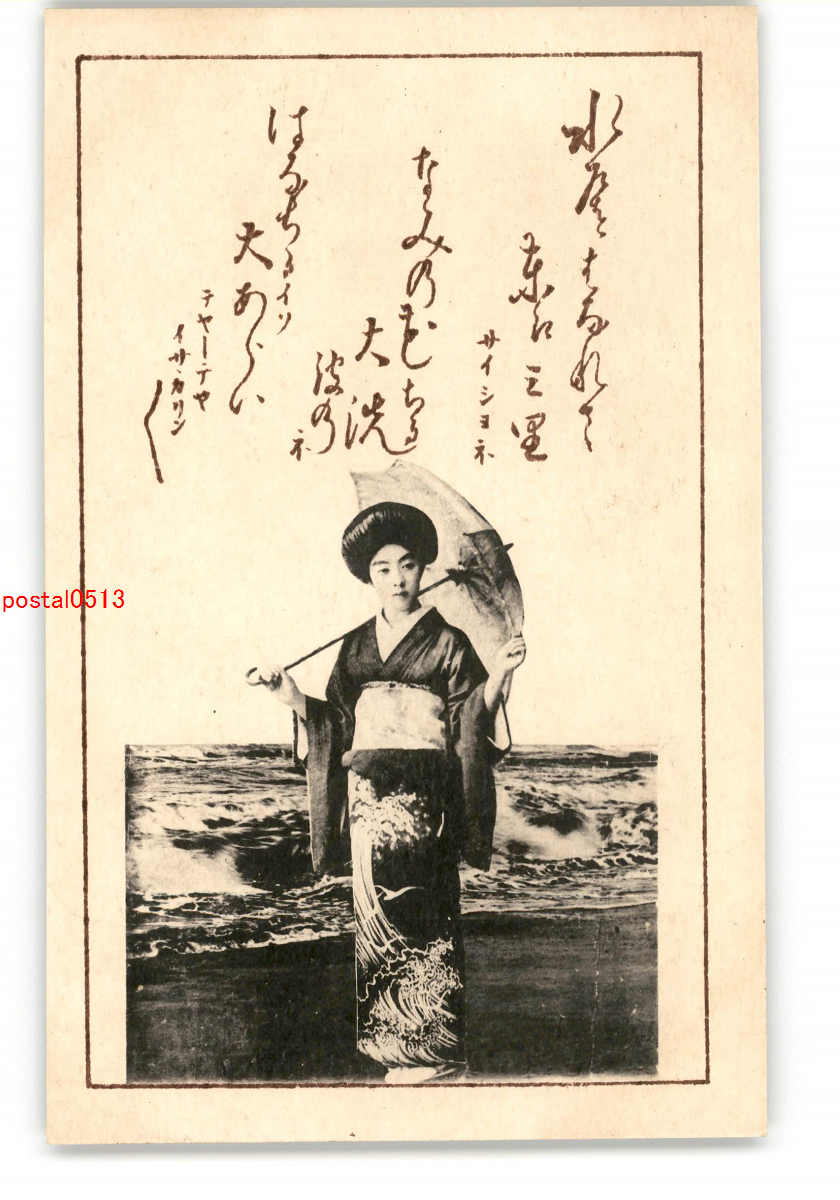 水戸をはなれて
東へ三里
サイシヨネ
なみの花ちる
大洗
波のネ
はなちるイソ
大あらい
テヤーテヤ
イサヽカリン〱
postal0513